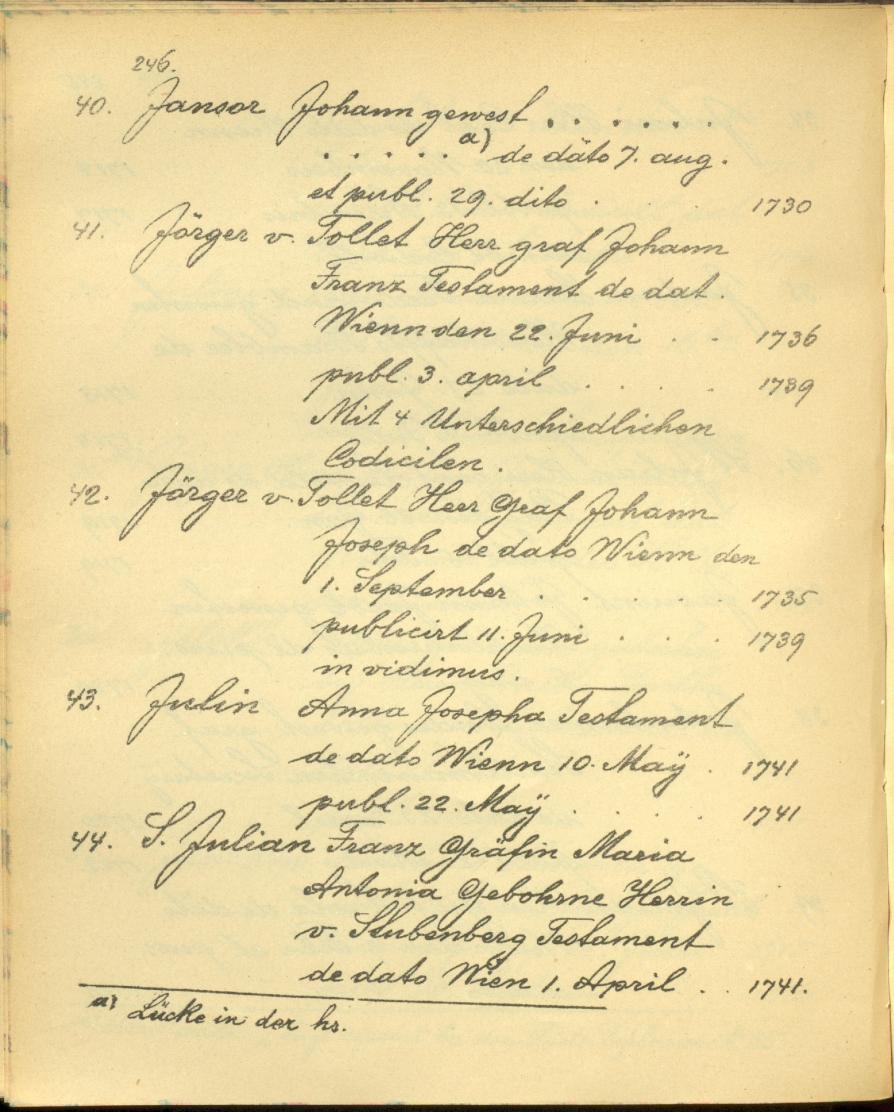 246.
40. Jansor Johann gewest . . . . . . .
. . . . . a) de däto 7. aug.
et publ. 29. dito . . . 1730
41. Jörger v. Tollet Herr graf Johann
Franz Testament de dat.
Wienn den 22. Juni . . 1736
publ. 3. april . . . 1739
Mit 4 Unterschiedlichen
Codicilen.
42. Jörger v. Tollet Herr Graf Johann
Joseph de dato Wienn den
1. September . . . . 1735
publicirt 11. Juni . . . 1739
in vidimus.
43. Julin Anna Josepha Testament
de dato Wienn 10. Maÿ . 1741
publ. 22. Maÿ . . . 1741
44. S. Julian Franz Gräfin Maria
Antonia Gebohrne Herrin
v. Stubenberg Testament
de dato Wien 1. April . . 1741.
a) Lücke in der hs.